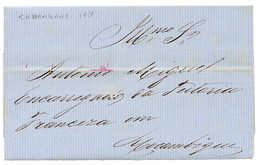 INHAMBANE 1858
Illmo. Sr.
Antonio Miguel
Encarregado da Feitoria
Franceza em
Mocambique